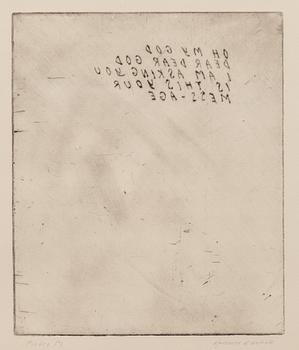 OH MY GOD
DEAR DEAR GOD
I AM ASKING YOU
IS THIS YOUR
MESS-AGE